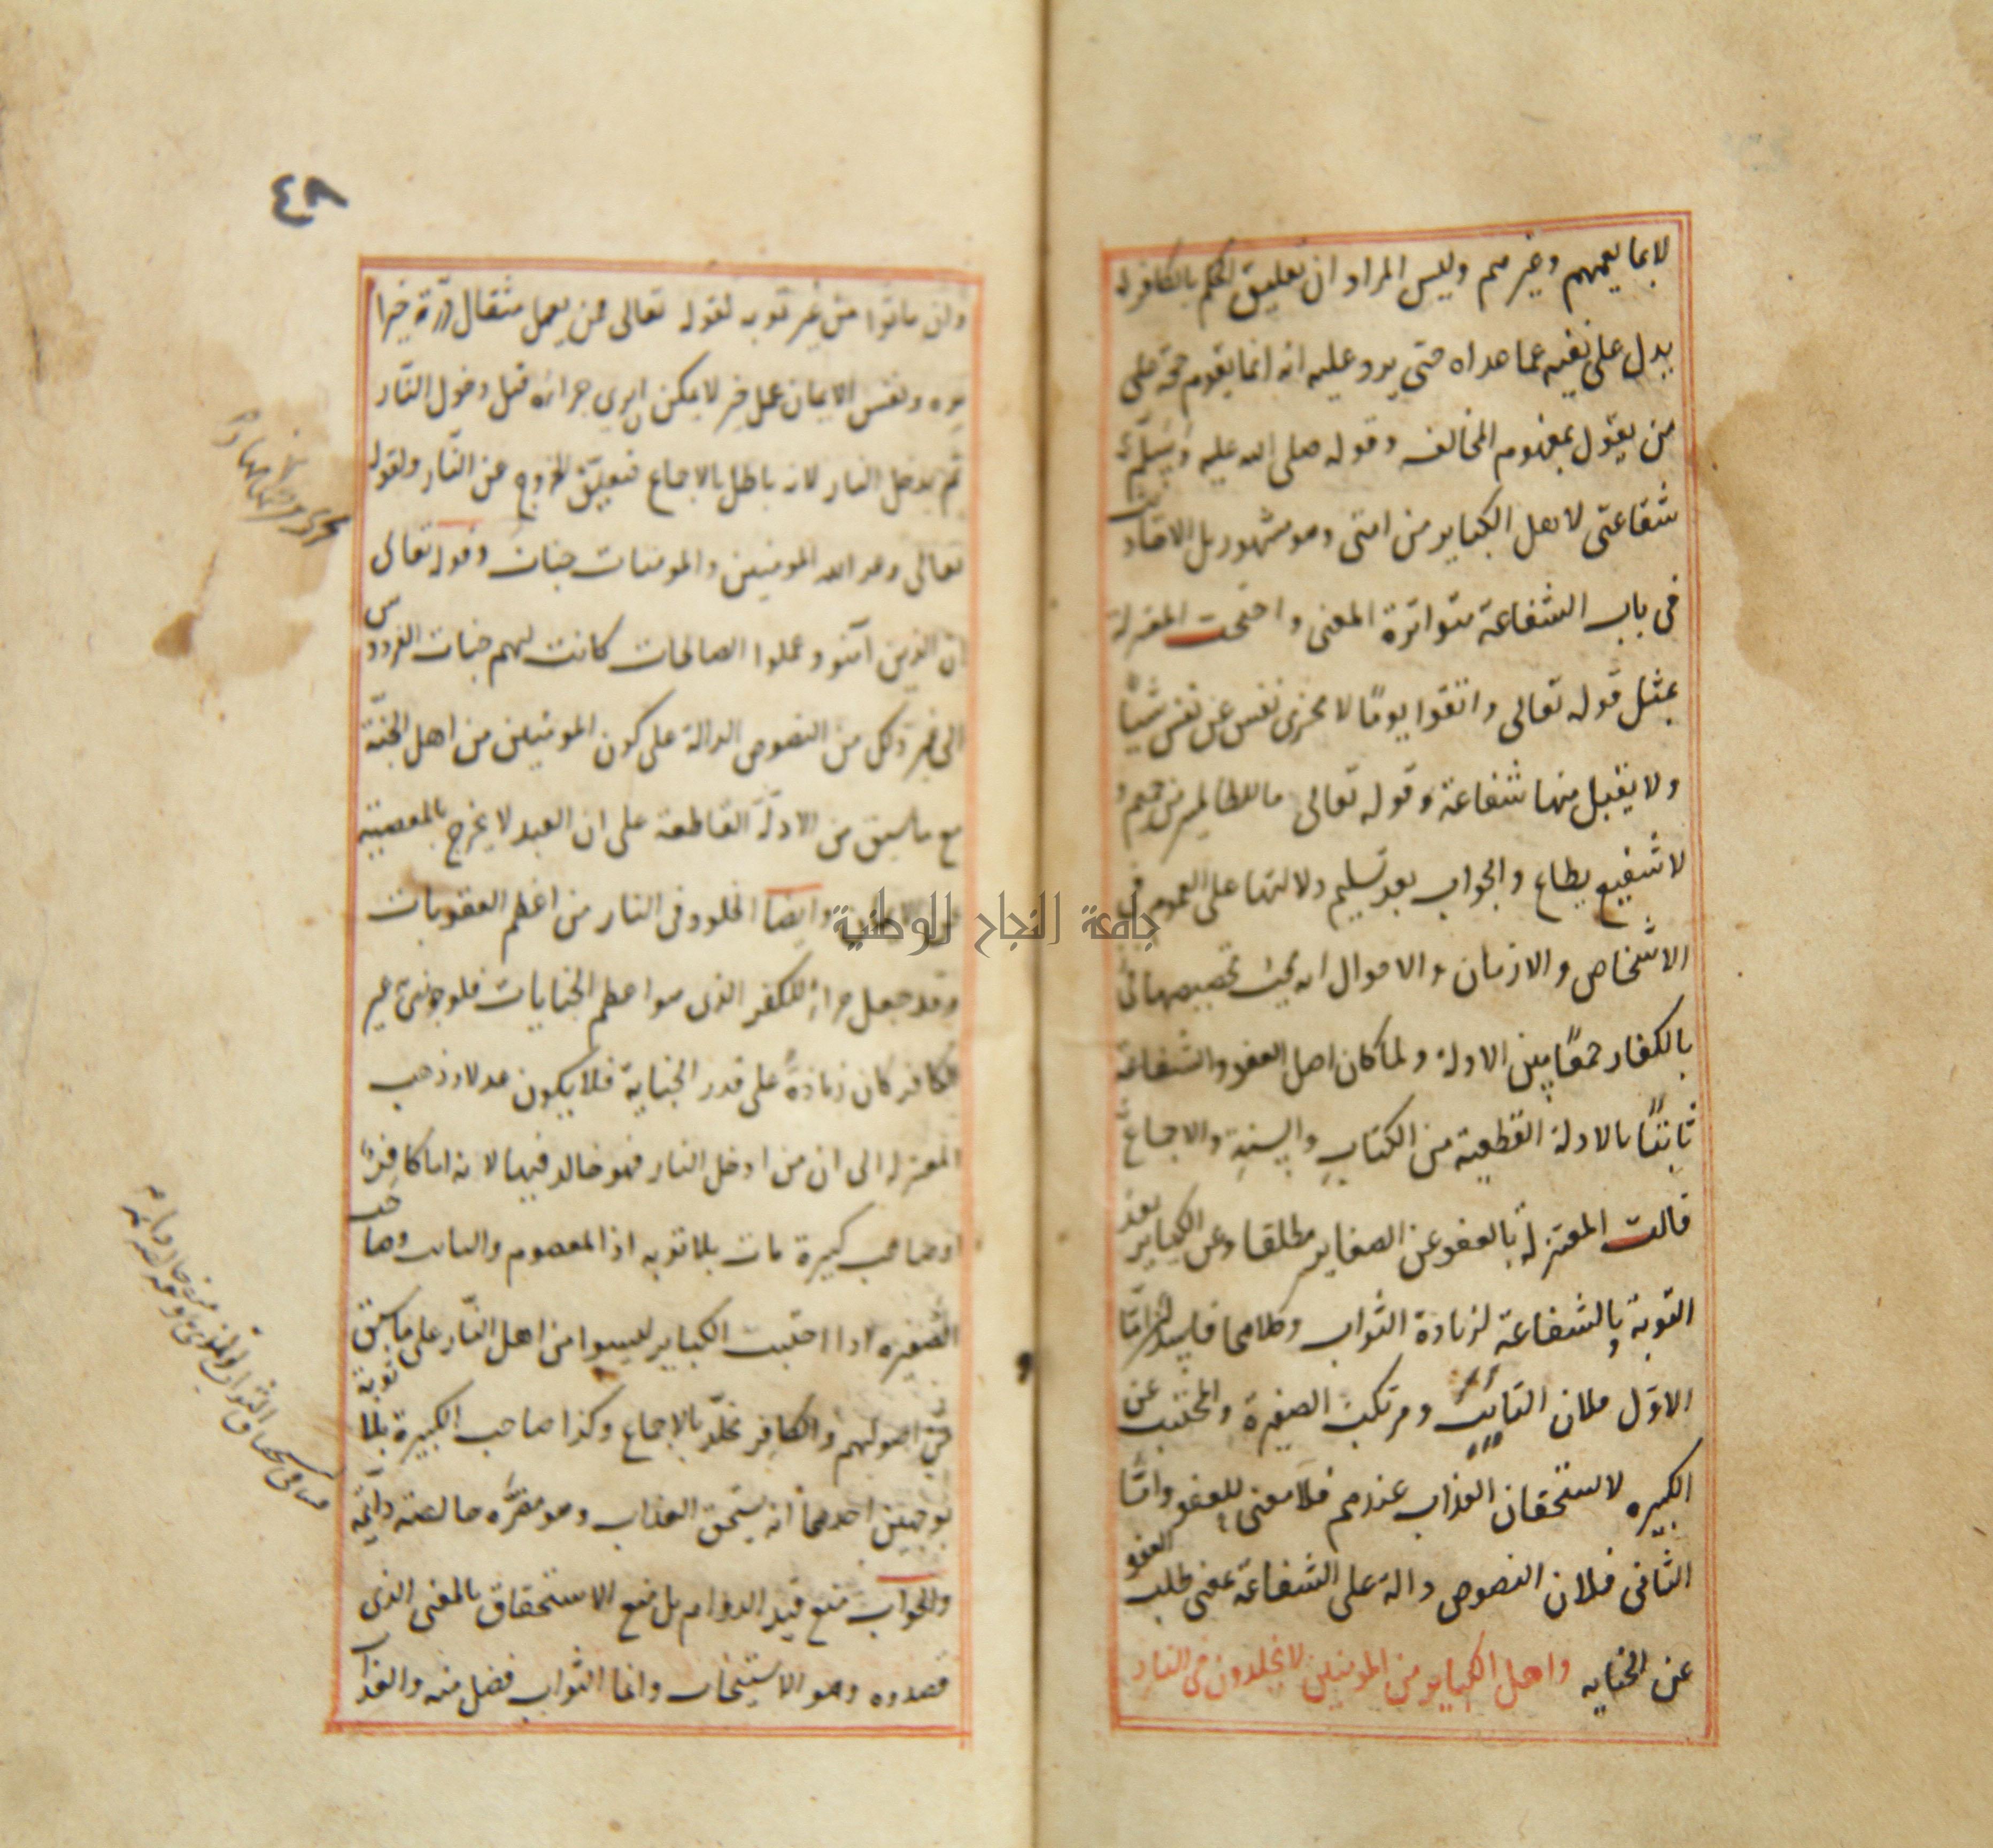 لا بما يعمهم وغيرهم وليس المراد ان تعليق الحكم بالكافر له
يدل على نفيه عما عداه حتى يرد عليه انه انما يقوم حجة على
من يقول بمفهوم المخالفه وقوله صلى الله عليه وسلم
شفاعتى لاهل الكباير من امتى وهو مشهور بل الاحاديث
فى باب الشفاعة متواترة المعنى واحتجت المعتزلة
بمثل قوله تعالى واتقوا يومًا لا تجزى نفس عن نفس شيئًا
ولا يقبل منها شفاعة وقوله تعالى ما للظالمين من حميم و
لا شفيع يطاع والجواب بعد تسليم دلالتها على العموم فى
الاشخاص والازمان والاحوال انه يجب تخصيصها
بالكفار جمعًا بين الادلة ولما كان اصل العفو والشفاعة
ثابتًا بالادلة القطعية من الكتاب والسنة والاجماع
قالت المعتزلة بالعفو عن الصغاير مطلقا وعن الكباير بعد
التوبة وبالشفاعة لزيادة الثواب وكلاهما فاسد اما
الاول فلان التايب ومرتكب الصغيرة والمجتنب عن
الكبيره لا يستحقان العذاب عندهم فلا معنى للعفو واما
الثانى فلان النصوص دالة على الشفاعة بمعنى طلب العفو
عن الجنايه واهل الكباير من المومنين لا يخلدون فى النار
٤٨
وان ماتوا من غير توبه لقوله تعالى فمن يعمل مثقال ذرة خيرا
يره ونفس الايمان عمل خير لا يمكن ان يرى جزاءه قبل دخول النار
ثم يدخل النار لانه باطل بالاجماع فتعين الخروج عن النار ولقوله
تعالى وعد الله المومنين والمومنات جنات وقوله تعالى
ان الذين آمنو وعملوا الصالحات كانت لهم جنات الفردوس
الى غير ذلك من النصوص الدالة على كون المومنين من اهل الجنة
مع ما سبق من الادلة القاطعة على ان العبد لا يخرج بالمعصية
عن الايمان وايضا الخلود فى النار من اعظم العقوبات
وقد جعل جزاء للكفر الذى هو اعظم الجنايات فلو جوزى غير
الكافر كان زيادة على قدر الجناية فلا يكون عدلا وذهب
المعتزله الى ان من ادخل النار فهو خالد فيها لانه اما كافر
او صاحب كبيرة مات بلا توبه اذ المعصوم والتايب وصاحب
الصغيره اذا اجتنب الكباير ليسوا من اهل النار على ما سبق
من اصولهم والكافر مخلد بالاجماع وكذا صاحب الكبيرة بلا توبة
بوجهين احدهما انه يستحق العذاب وهو مضره خالصة دايمة
والجواب منع قيد الدوام بل منع الاستحقاق بالمعنى الذى
قصدوه وهو الاستيجاب وانما الثواب فضل منه والعذاب
جامعة النجاح الوطنية